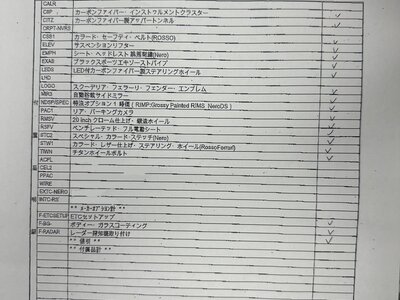 CALR
CIIP カーボンファイバー・インストゥルメントクラスター
CITZ カーボンファイバー製アッパートンネル
CRPT-NMRS
CSB1 カラード・セーフティ・ベルト(ROSSO)
ELEV サスペンションリフター
EMPH シート・ヘッドレスト 跳馬刺繍(Nero)
EXA8 ブラックスポーツエキゾーストパイプ
LEDS LED付カーボンファイバー製ステアリングホイール
LHD
LOGO スクーデリア・フェラーリ・フェンダー・エンブレム
MIR3 自動防眩サイドミラー
NDSP/SPEC 特注オプション1 時価 (RIMP:Glossy Painted RIMS_NeroDS)
PAC1 リア・パーキングカメラ
RMSV 20 inch クローム仕上げ・鍛造ホイール
RSFV ベンチレーテッド・フル電動シート
STC2 スペシャル・カラード・ステッチ(Nero)
STW1 カラード・レザー仕上げ・ステアリング・ホイール(RossoFerrari)
TIWN チタンホイールボルト
ACFL
CEL2
PPAC
WIRE
EXTC-NERO
INTC-RS
** メーカーオプション計 **
F-ETCSETUP ETCセットアップ
F-BG ボディー・ガラスコーティング
F-RADAR レーダー探知機取り付け
** 値引 **
** 付属品計 **
付
属
品
明
細